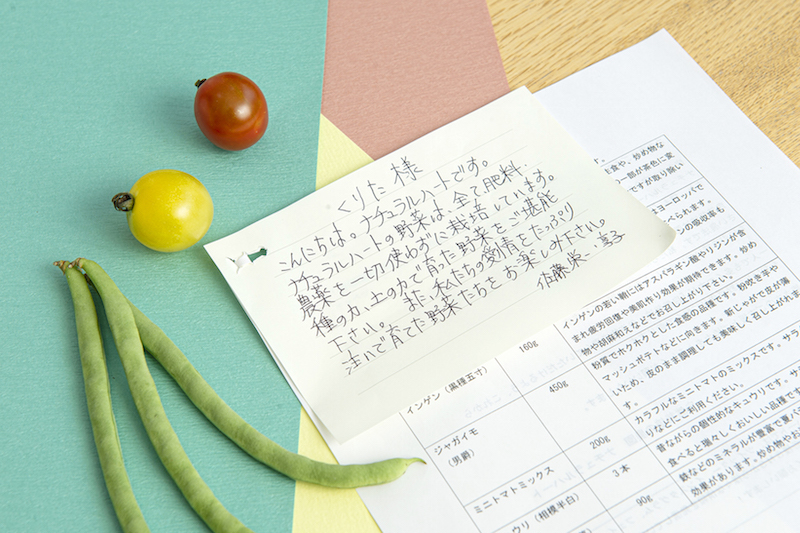 くりた 様
こんにちは。ナチュラルハートです。
ナチュラルハートの野菜は、全て肥料・
農薬を一切使わずに栽培しています。
種の力、土の力で育った野菜をご堪能
下さい。また、私たちの愛情をたっぷり
注いで育てた野菜たちをお楽しみ下さい。
佐藤
食や、炒め物な
一部が茶色に変
ですが取り扱い
ヨーロッパで
べられます。
の吸収率も
インゲン(黒種五寸)
160g
インゲンの若い鞘にはアスパラギン酸やリジンが含
まれ疲労回復や美肌作り効果が期待できます。炒め
物や胡麻和えなどでお召し上がり下さい。
ジャガイモ
(男爵)
450g
粉質でホクホクとした食感の品種です。粉吹き芋や
マッシュポテトなどに向きます。新じゃがで皮が薄
いため、皮のまま調理しても美味しく召し上がれま
す。
ミニトマトミックス
200g
カラフルなミニトマトのミックスです。サラ
りなどにご利用ください。
ウリ(相模半白)
3本
昔ながらの個性的なキュウリです。サ
食べると瑞々しくおいしい品種です
90g
鉄などのミネラルが豊富で夏バ
効果があります。炒め物やお